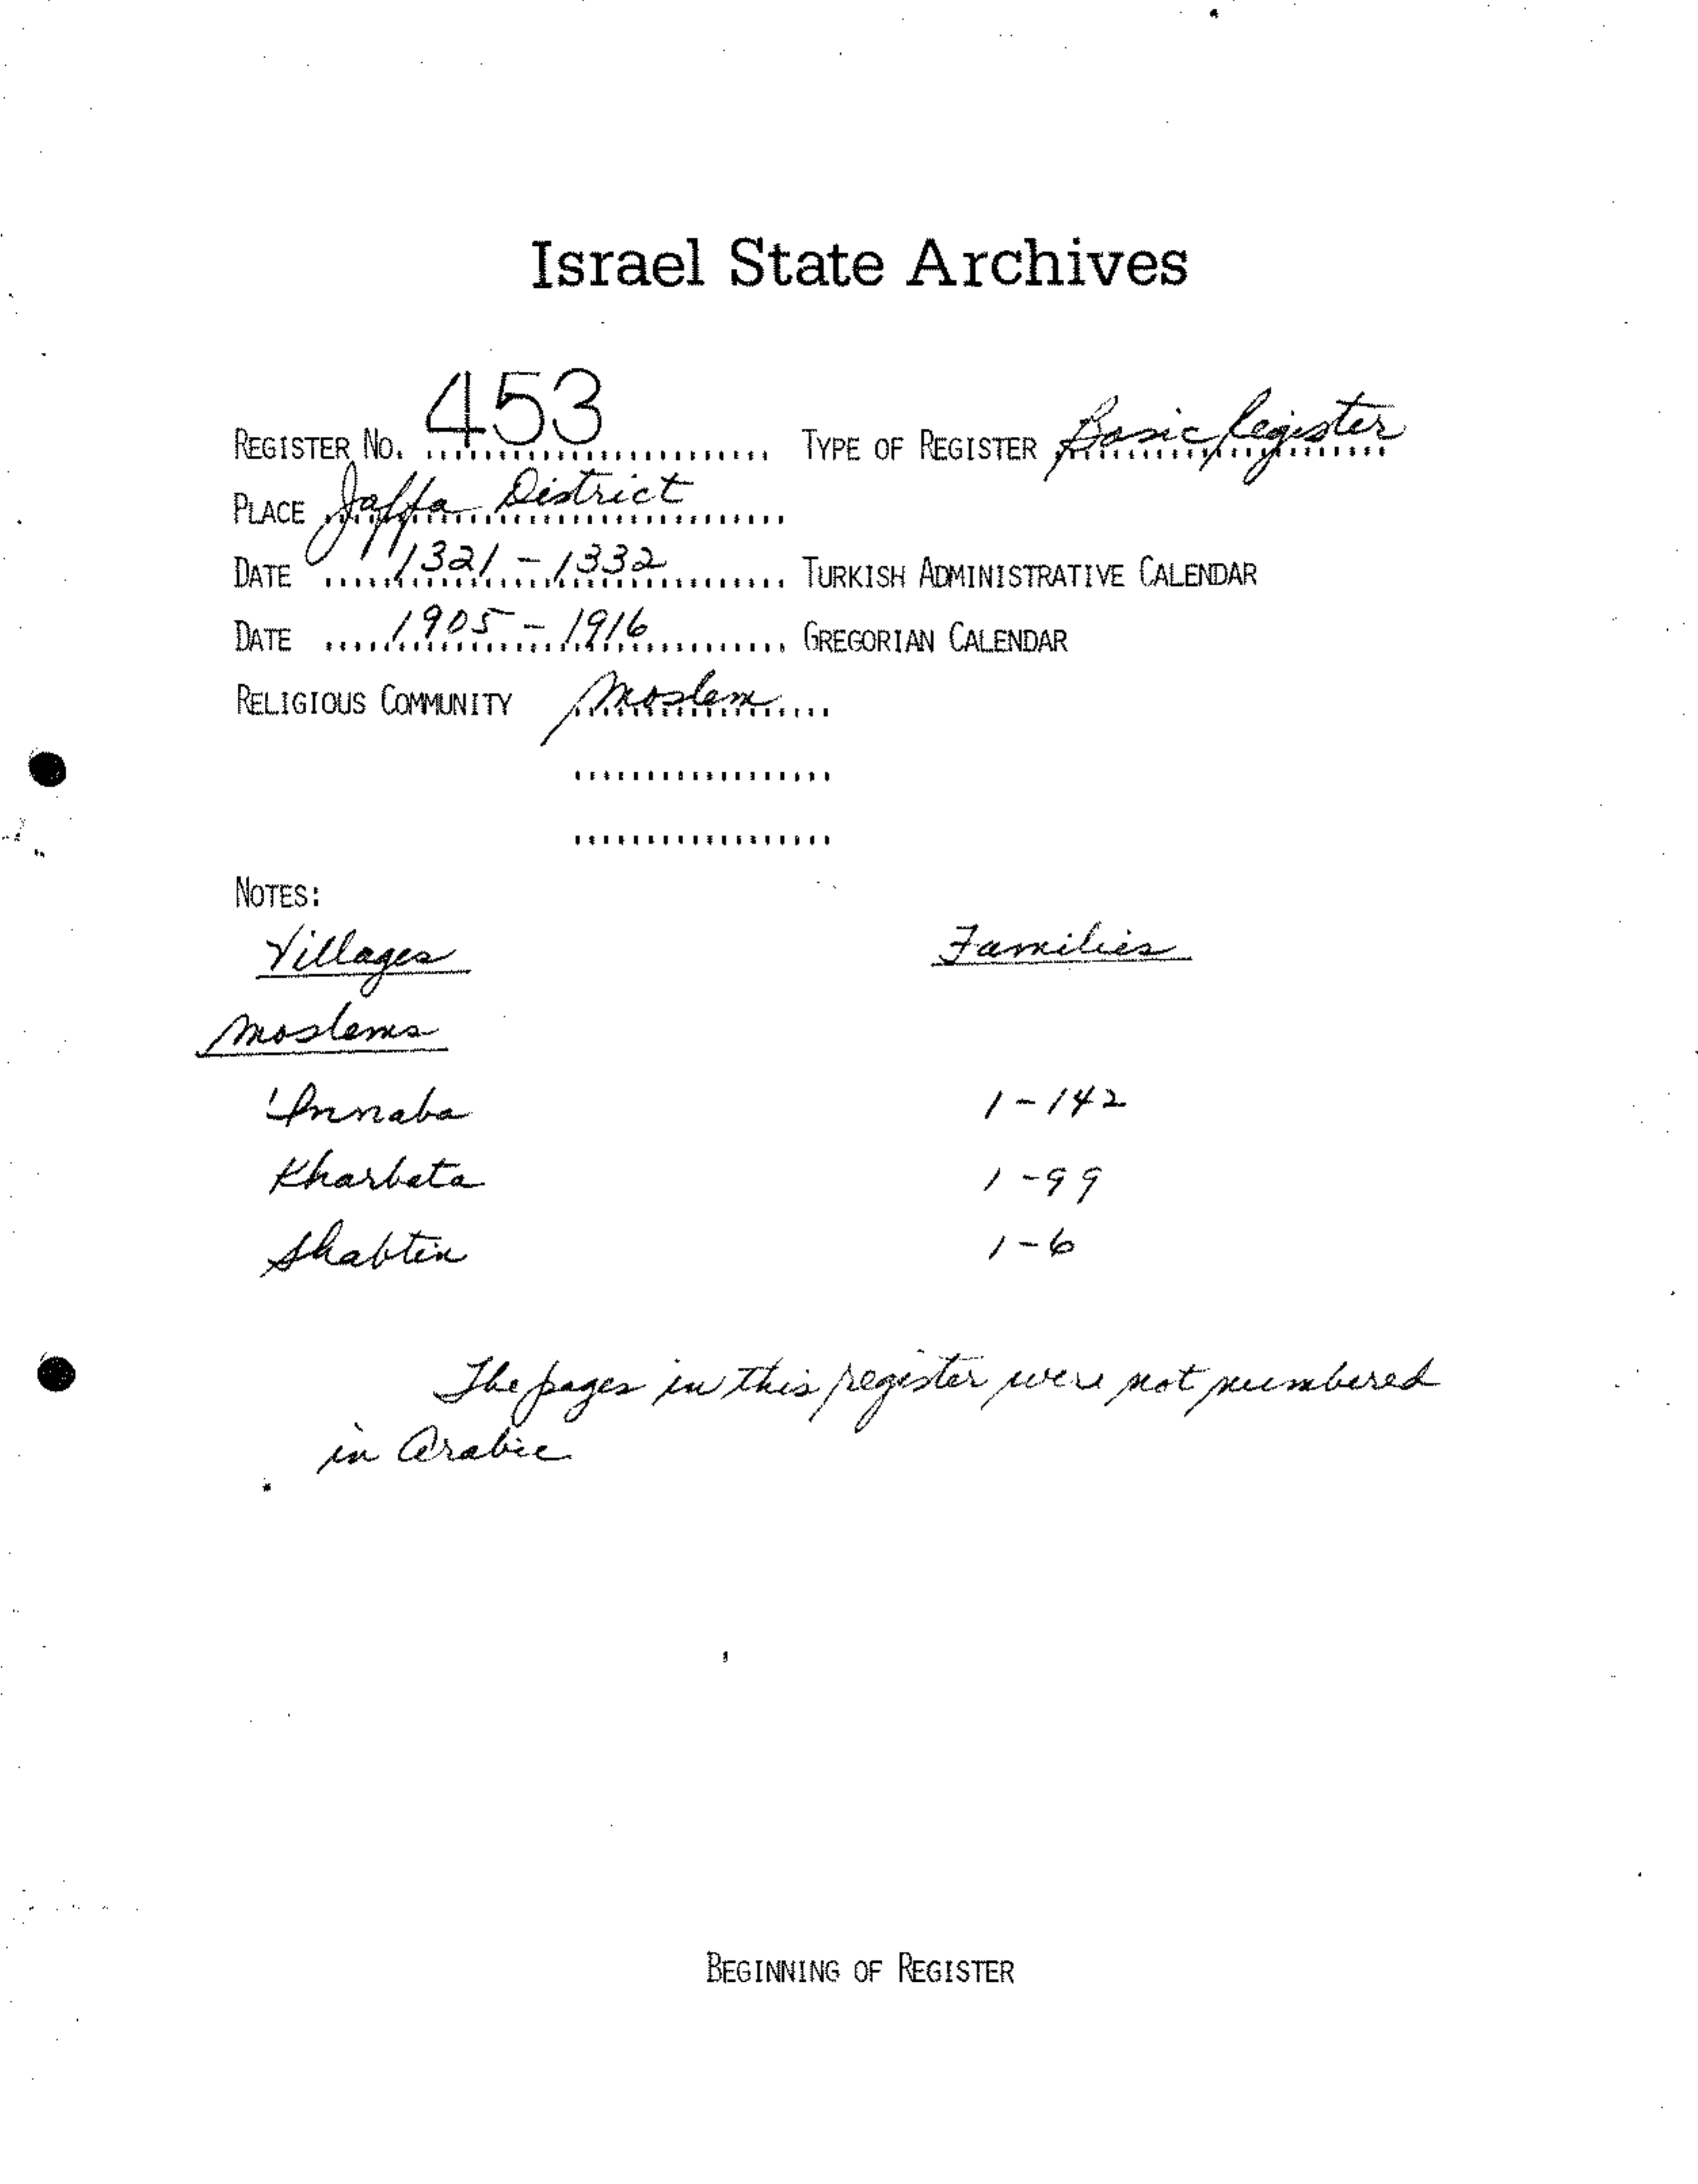 Israel State Archives
REGISTER No. 453 TYPE OF REGISTER Basic Register
PLACE Jaffa District
DATE 1321 - 1332 TURKISH ADMINISTRATIVE CALENDAR
DATE 1905 - 1916 GREGORIAN CALENDAR
RELIGIOUS COMMUNITY Moslem
NOTES:
Villages Families
Moslems
'Innaba 1 - 142
Kharbata 1 - 99
Shabtin 1 - 6
The pages in this register were not numbered
in Arabic
BEGINNING OF REGISTER